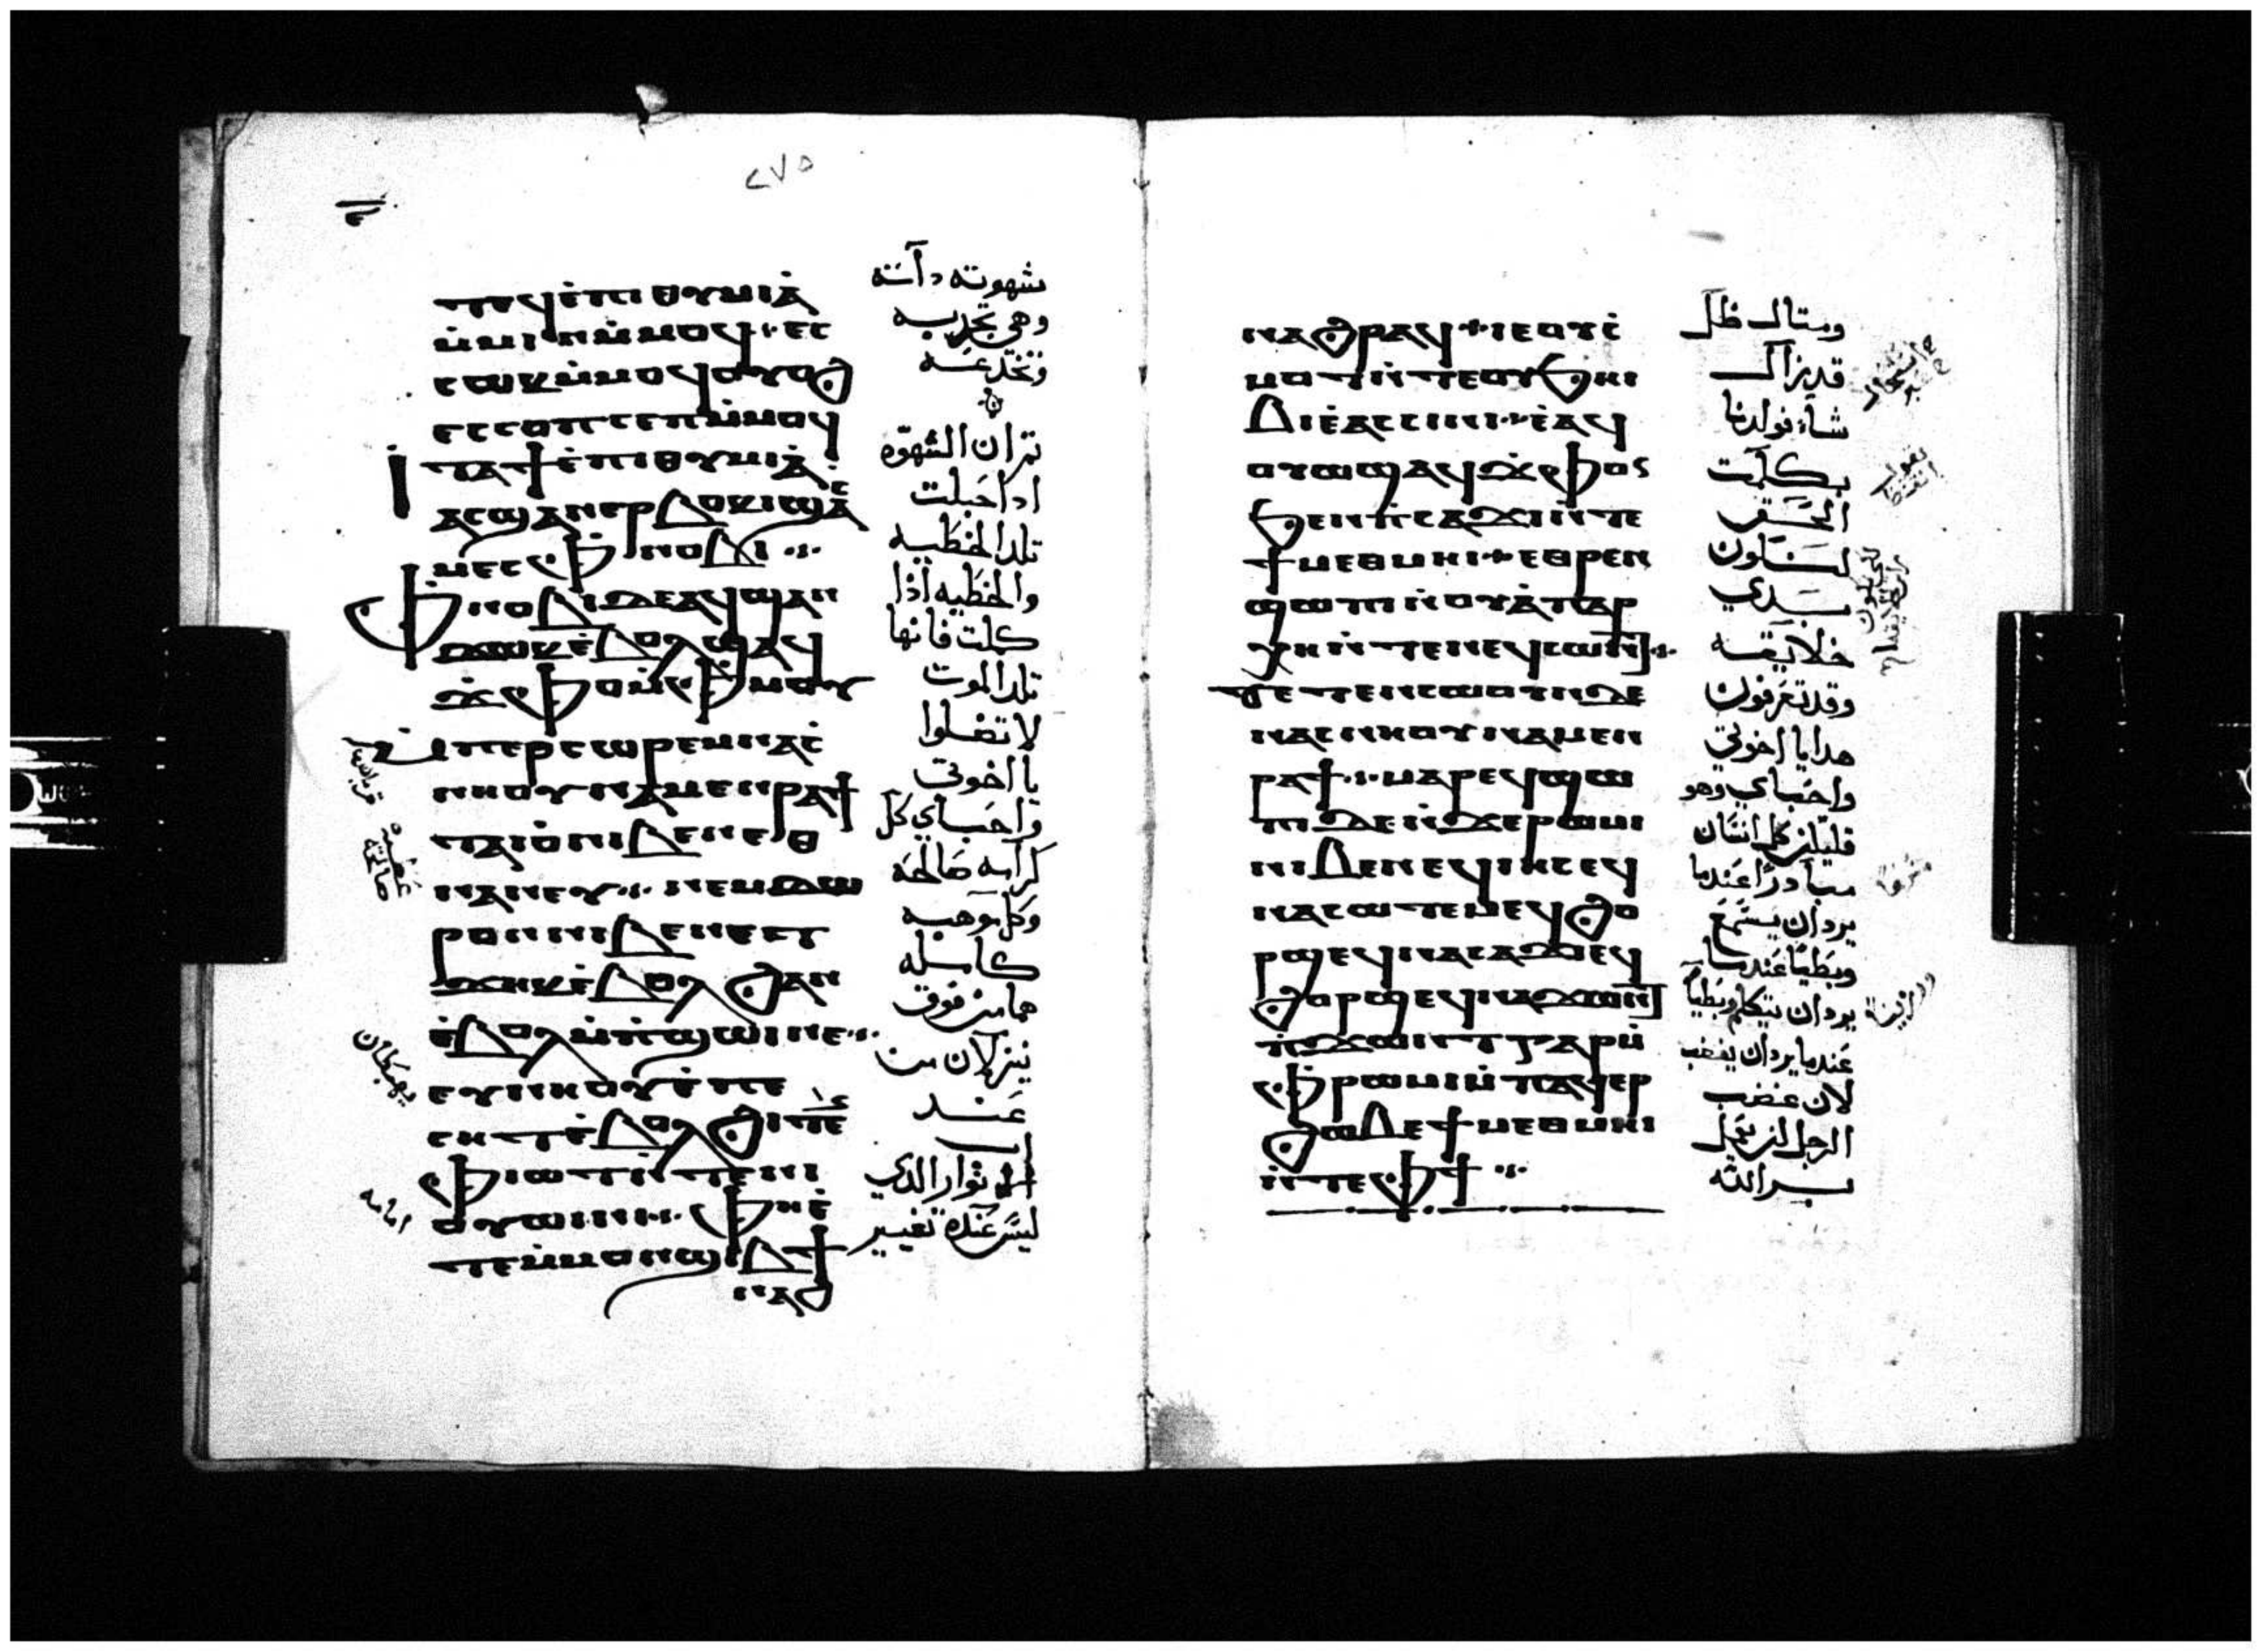 ٢٧٥
ⲧⲉϥⲉ̇ⲡⲓⲑⲩⲙⲓⲁ̇
ⲙ̇ⲙⲓⲛ ⲙ̇ⲙⲟϥ ⁖ ⲉⲥ
ⲥⲱⲕ ⲙ̇ⲙⲟϥ ⲟⲩⲟϩ
ⲉⲥⲥⲟⲡⲥⲉⲡ ⲙ̇ⲙⲟϥ
ⲓⲧⲁ ϯⲉ̇ⲡⲓⲑⲩⲙⲓⲁ̇
ⲁⲥϣⲁⲛⲉⲣⲃⲟⲕⲓ ϣⲁⲥ
ⲙⲉⲥ ⲫⲛⲟⲃⲓ ⁖
ⲫⲛⲟⲃⲓ ⲇⲉ ⲁϥϣⲁⲛ
ϫⲱⲕ ⲉ̇ⲃⲟⲗ ϣⲁϥ
ϫ̇ⲫⲟ ⲙ̇ⲫⲙⲟⲩ
ⲙ̇ⲡⲉⲣⲥⲱⲣⲉⲙ ⲛⲁⲥ̇
ⲛⲏⲟⲩ ⲛⲁⲙⲉⲛⲣⲁϯ
ⲧⲁⲓⲟ̇ ⲛⲓⲃⲉⲛ ⲉⲑ
ⲛⲁⲛⲉⲩ ⁖ ⲛⲉⲙ ⲇⲱ
ⲣⲟⲛ ⲛⲓⲃⲉⲛ ⲉⲧ
ϫⲏⲕ ⲉ̇ⲃⲟⲗ ϩⲁⲛ
ⲉ̇ⲃⲟⲗ ⲙ̇ⲡ̇ϣⲱⲓ ⲛⲉ ⁖
ⲉⲩⲛⲏⲟⲩ ⲉ̇ⲡⲉ
ⲥⲏⲧ ⲉ̇ⲃⲟⲗ ϩⲓⲧⲉ
ⲫⲓⲱⲧ ⲛ̇ⲧⲉ ⲛⲓ
ⲟⲩⲱⲓⲛⲓ ⁖ ⲫⲏ ⲉ̇
ⲧⲉ ⲙ̇ⲙⲟⲛ ϣⲓⲃϯ
ⲛⲁϩ
شهوته داته
وهي تجدبه
وتخدعه
تم ان الشهوه
ادا حبلت
تلد الخطيه
والخطيه اذا
كملت فانها
تلد الموت
لا تضلوا
يا اخوتي
واحباي كل
كرامه صالحه
وكل موهبه
كامله
هما من فوق
ينزلان من
عند
اب
الانوار الدي
ليس عنده تغيير
ⲛⲁϩⲣⲁϥ ⁖ ⲓⲉ ⲟⲩⲥ̇
ⲙⲟⲧ ⲛ̇ⲧⲉ ⲟⲩϧⲏⲓ
ⲃⲓ ⲉ̇ⲁⲥⲥⲓⲛⲓ ⁖ ⲉ̇ⲁϥ
ⲟⲩⲱϣ ⲁϥϫ̇ⲫⲟⲛ
ϧⲉⲛ ⲡ̇ⲥⲁϫⲓ ⲛ̇ⲧⲉ
ϯⲙⲉⲑⲙⲏⲓ ⁖ ⲉⲑⲣⲉⲛ
ϣⲱⲡⲓ ⲛ̇ⲟⲩⲁ̇ⲡⲁⲣ
ⲭⲏ ⲛ̇ⲧⲉ ⲛⲉϥⲥⲱⲛⲧ ⁖
ⲧⲉⲧⲉⲛⲥⲱⲟⲩⲛ ⲇⲉ
ⲛⲁⲥⲛⲏⲟⲩ ⲛⲁⲙⲉⲛ
ⲣⲁϯ ⁖ ⲙⲁⲣⲉϥϣⲱ
ⲡⲓ ⲇⲉ ⲛ̇ϫⲉ ⲣⲱⲙⲓ
ⲛⲓⲃⲉⲛ ⲉϥⲓⲏⲥ ⲉϥ
ⲛⲁⲥⲱⲧⲉⲙ ⲉϥϩⲟ
ⲣϣ ⲉϥⲛⲁⲥⲁϫⲓ ⲉϥ
ϩⲟⲣϣ ⲉϥⲛⲁϫⲱⲛⲧ
ⲡ̇ϫⲱⲛⲧ ⲅⲁⲣ ⲙ̇
ⲫⲣⲱⲙⲓ ⲙ̇ⲡⲁϥⲉⲣ
ϩⲱⲃ ⲉ̇ϯⲙⲉⲑⲙⲏⲓ
ⲛ̇ⲧⲉ ⲫϯ ⁖
ومتال ظل
قد زال
شاء فولدنا
بكلمت
الحق
لنكون
بدي
خلايقه
وقد تعرفون
هدا يا اخوتي
واحباي وهو
فليكن كل انسان
مبادرًا عندما
يرد ان يسمع
وبطيا عندما
يرد ان يتكلم وبطيا
عندما يرد ان يغضب
لان غضب
الرجل لن يعمل
بر الله